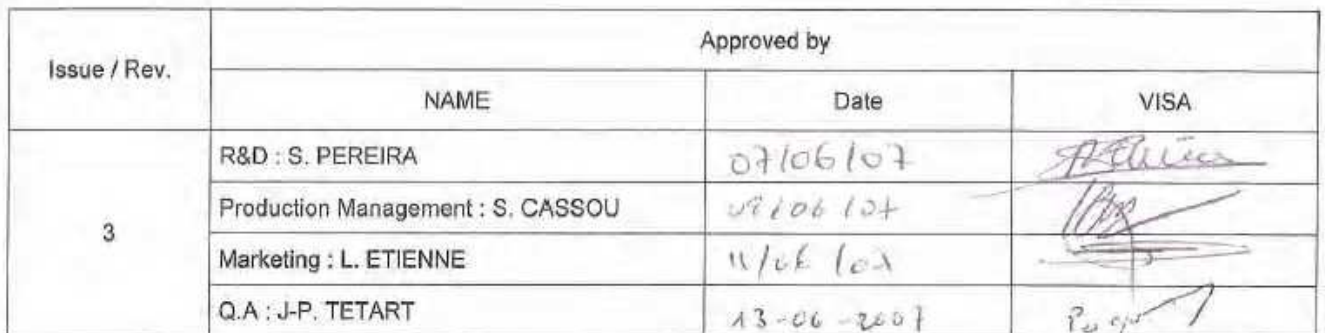 Issue / Rev.
Approved by
NAME
Date
VISA
3
R&D : S. PEREIRA
07/06/07
Production Management : S. CASSOU
Marketing : L. ETIENNE
11/06/07
Q.A : J-P. TETART
13-06-2007